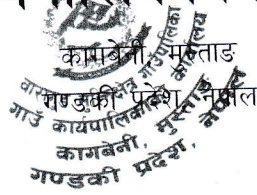 कागबेनी, मुस्ताङ
गण्डकी प्रदेश, नेपाल
गाउँपालिका
गाउँ कार्यपालिकाको कार्यालय
कागबेनी, मुस्ताङ
गण्डकी प्रदेश, नेपाल